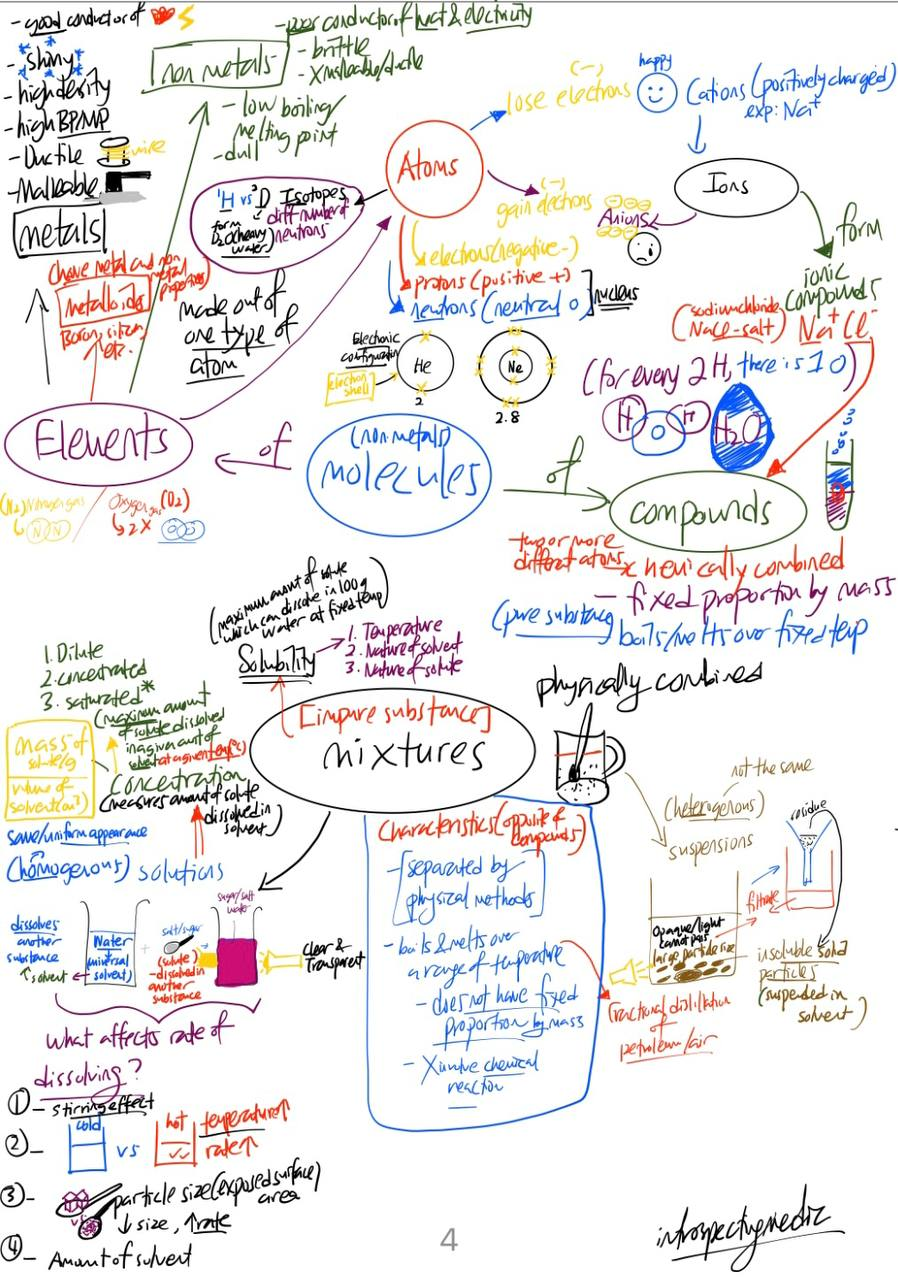 - good conductor of
- shiny
- high density
- high BP/MP
- Ductile
wire
- Malleable
metals
non metals
- poor conductor of heat & electricity
- brittle
- X malleable/ductile
- low boiling/
melting point
- dull
Atoms
(-)
lose electrons
happy
Cations (positively charged)
exp: Na+
Ions
(-)
gain electrons
Anions
form
ionic
compounds
(sodium chloride
NaCl - salt)
Na+ Cl-
¹H vs ²D Isotopes
form
D₂O (heavy
water)
diff number of
neutrons
electrons (negative -)
protons (positive +)
neutrons (neutral 0)
nucleus
(have metal and non
metal properties)
metalloids
Boron, silicon,
etc.
made out of
one type of
atom
Electronic
configuration
electron
shell
He
2
Ne
2.8
(for every 2 H, there is 1 O)
H O H
H₂O
Elements
of
(non metals)
molecules
of
compounds
(N₂) Nitrogen gas
N N
Oxygen gas (O₂)
2X
O O
- two or more
different atoms
chemically combined
- fixed proportion by mass
(pure substance)
boils/melts over fixed temp
(maximum amount of solute
which can dissolve in 100g
water at fixed temp)
Solubility
1. Temperature
2. Nature of solvent
3. Nature of solute
1. Dilute
2. concentrated
3. saturated*
(maximum amount
of solute dissolved
in a given amount of
solvent at a given temp°C)
mass of
solute/g
volume of
solvent
concentration
(measures amount of solute
dissolved in
solvent)
[impure substance]
mixtures
physically combined
same/uniform appearance
(homogenous) solutions
dissolves
another
substance
solvent
Water
(universal
solvent)
+
salt/sugar
(solute)
- dissolved in
another
substance
sugar/salt
water
Clear &
Transparent
What affects rate of
dissolving?
① - stirring effect
② -
cold
vs
hot
temperature↑
rate↑
③ -
vs
particle size (exposed surface
area)
↓ size, ↑ rate
④ - Amount of solvent
Characteristics (opposite of
compounds)
- [separated by
physical methods]
- boils & melts over
a range of temperature
- does not have fixed
proportion by mass
- X involve chemical
reaction
fractional distillation
of
petroleum/air
not the same
(heterogenous)
suspensions
Opaque/light
cannot pass
large particle size
residue
filtrate
insoluble solid
particles
(suspended in
solvent)
4
introspectivemedic